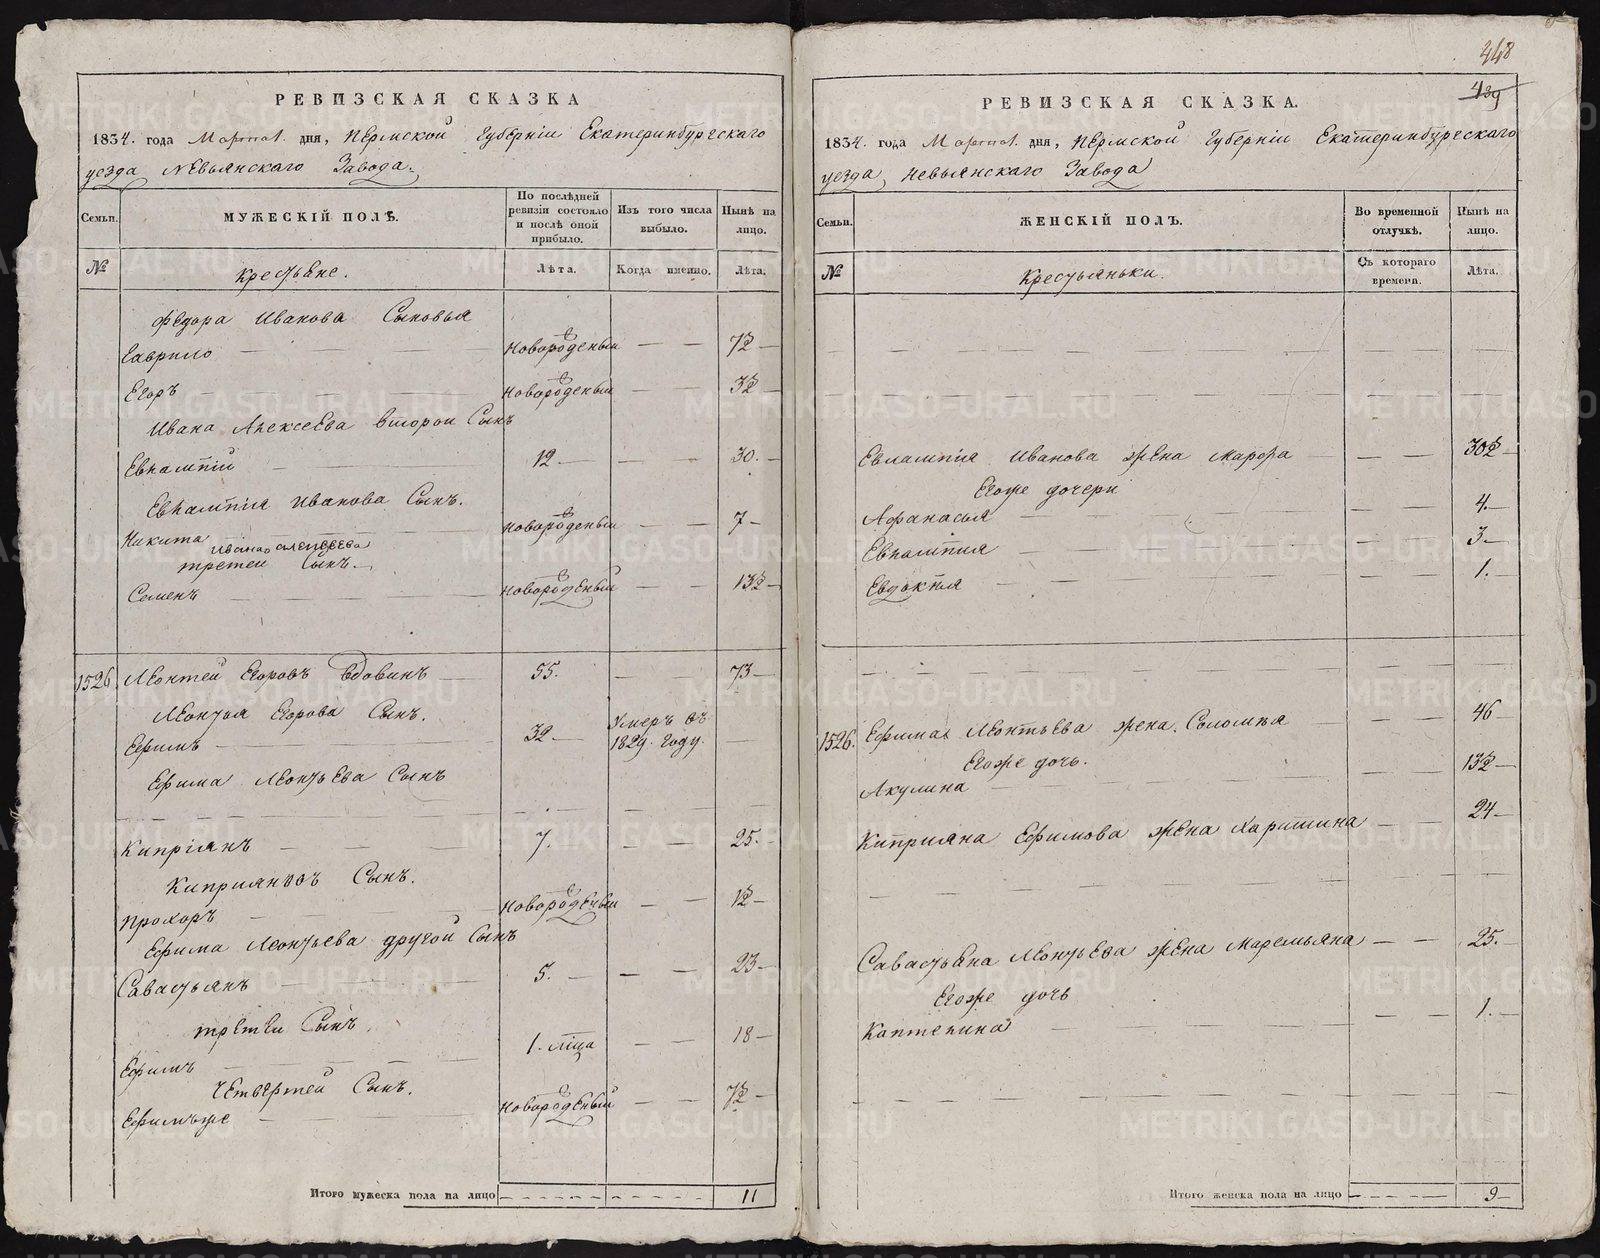 РЕВИЗСКАЯ СКАЗКА
1834. года Марта 1. дня, Пермской Губерніи Екатеринбургскаго
уезда Невьянскаго Завода.
Семьи.
МУЖЕСКІЙ ПОЛЪ.
По послѣдней ревизіи состояло и послѣ оной прибыло.
Изъ того числа выбыло.
Нынѣ на лицо.
№
Крестьяне.
Лѣта.
Когда именно.
Лѣта.
Федора Иванова Сыновья
Гаврило — Новороденый — — 7½
Егоръ — Новороденый — — 3½
Ивана Алексеева второй Сынъ
Евлампій — 12 — — 30.
Евлампія Иванова Сынъ.
Никита — Новороденый — — 7
Ивана Алексеева
третей Сынъ.
Семенъ — Новороденый — — 13½
1526. Леонтей Егоровъ Вдовинъ — 55. — — 73
Леонтья Егорова Сынъ.
Ефимъ — 32 — Умеръ въ 1829. году.
Ефима Леонтьева Сынъ
Кипріянъ — 7. — — 25.
Киприяновъ Сынъ.
Прохоръ — Новороденый — — 1½
Ефима Леонтьева другой Сынъ
Савастьянъ — 5. — — 23
третей Сынъ.
Ефимъ — 1. — — 18
Четвертей Сынъ.
Ефимъже — Новороденый — — 7½
Итого мужеска пола на лицо — 11
448
439
РЕВИЗСКАЯ СКАЗКА.
1834. года Марта 1. дня, Пермской Губерніи Екатеринбургскаго
уезда, Невьянскаго Завода
Семьи.
ЖЕНСКІЙ ПОЛЪ.
Во временной отлучкѣ.
Нынѣ на лицо.
№
Крестьяньки.
Съ котораго времени.
Лѣта.
Евлампія Иванова жена Марфа — — 30½
Егоже дочери
Афанасья — 4.
Евлампия — 3.
Евдокѣя — 1.
1526. Ефима Леонтьева жена Соломѣя — — 46
Егоже дочь.
Акулина — 13½
Киприяна Ефимова жена Харитина — — 24
Савастьяна Леонтьева жена Маремьяна — — 25.
Егоже дочь
Каптелина — 1.
Итого женска пола на лицо — 9
METRIKI.GASO-URAL.RU